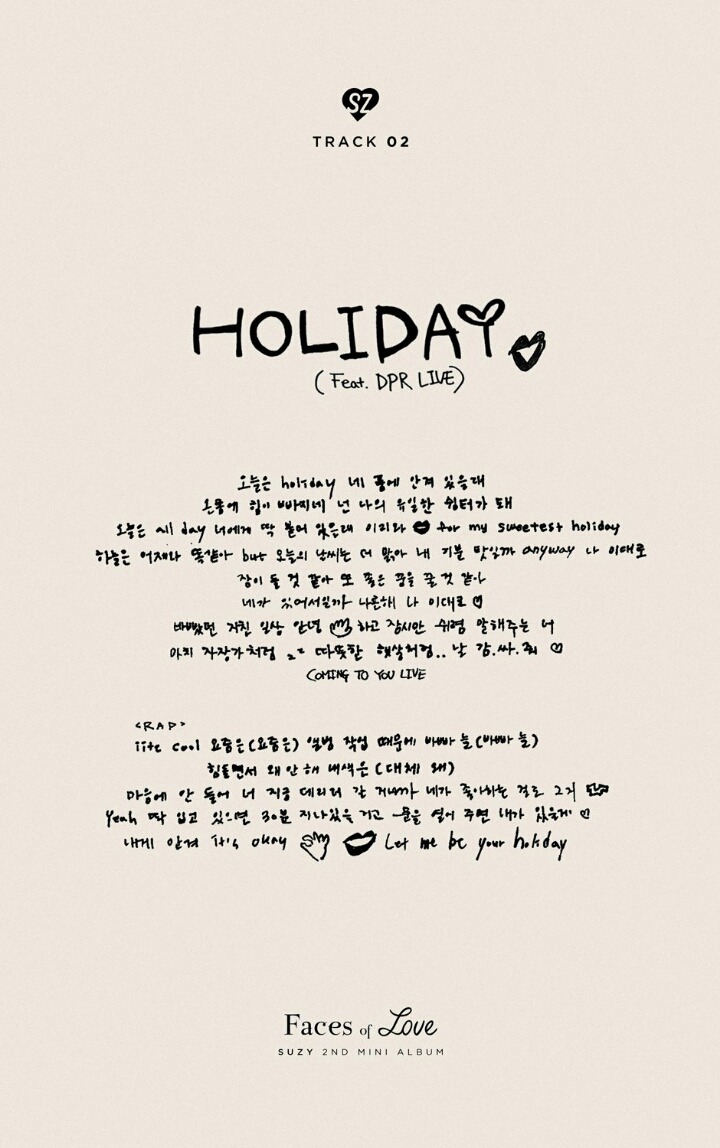 SZ
TRACK 02
HOLIDAY
(Feat. DPR LIVE)
오늘은 holiday 네 품에 안겨 있을래
온몸에 힘이 빠지네 넌 나의 유일한 쉼터가 돼
오늘은 all day 너에게 딱 붙어 있을래 이리와 for my sweetest holiday
하늘은 어제와 똑같아 but 오늘의 날씨는 더 맑아 내 기분 탓일까 anyway 나 이대로
잠이 들 것 같아 또 좋은 꿈을 꿀 것 같아
네가 있어서일까 나른해 나 이대로
바빴던 지친 일상 안녕 하고 잠시만 쉬렴 말해주는 너
마치 자장가처럼 zz 따뜻한 햇살처럼.. 날 감.싸.줘
COMING TO YOU LIVE
<RAP>
cool 요즘은(요즘은) 앨범 작업 때문에 바빠 늘(바빠 늘)
힘들면서 왜 안 해 내색은(대체 왜)
마음에 안 들어 너 지금 데리러 갈 거니까 네가 좋아하는 걸로 그거
Yeah 딱 입고 있으면 30분 지나있을 거고 문을 열어 주면 내가 있을게
내게 안겨 it's okay Let me be your holiday
Faces of Love
SUZY 2ND MINI ALBUM